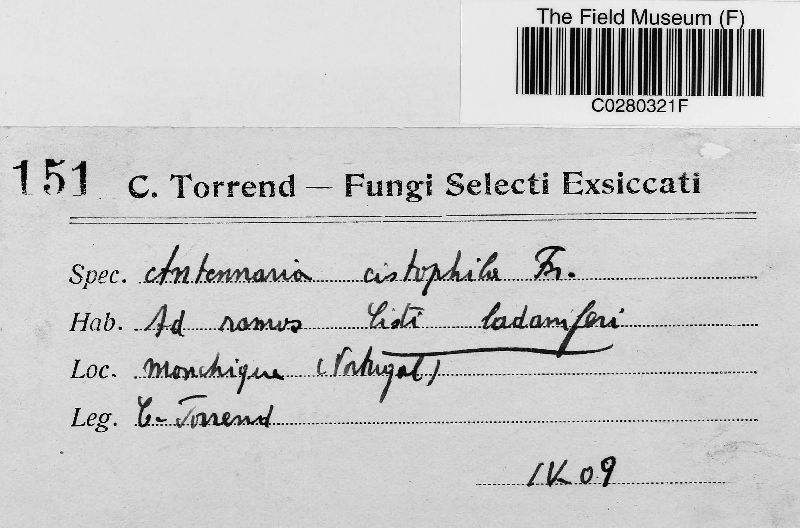 The Field Museum (F)
C0280321F
151 C. Torrend — Fungi Selecti Exsiccati
Spec. Antennaria cistophila Fr.
Hab. Ad ramos Cisti ladaniferi
Loc. Monchique (Portugal)
Leg. C. Torrend
IV-09